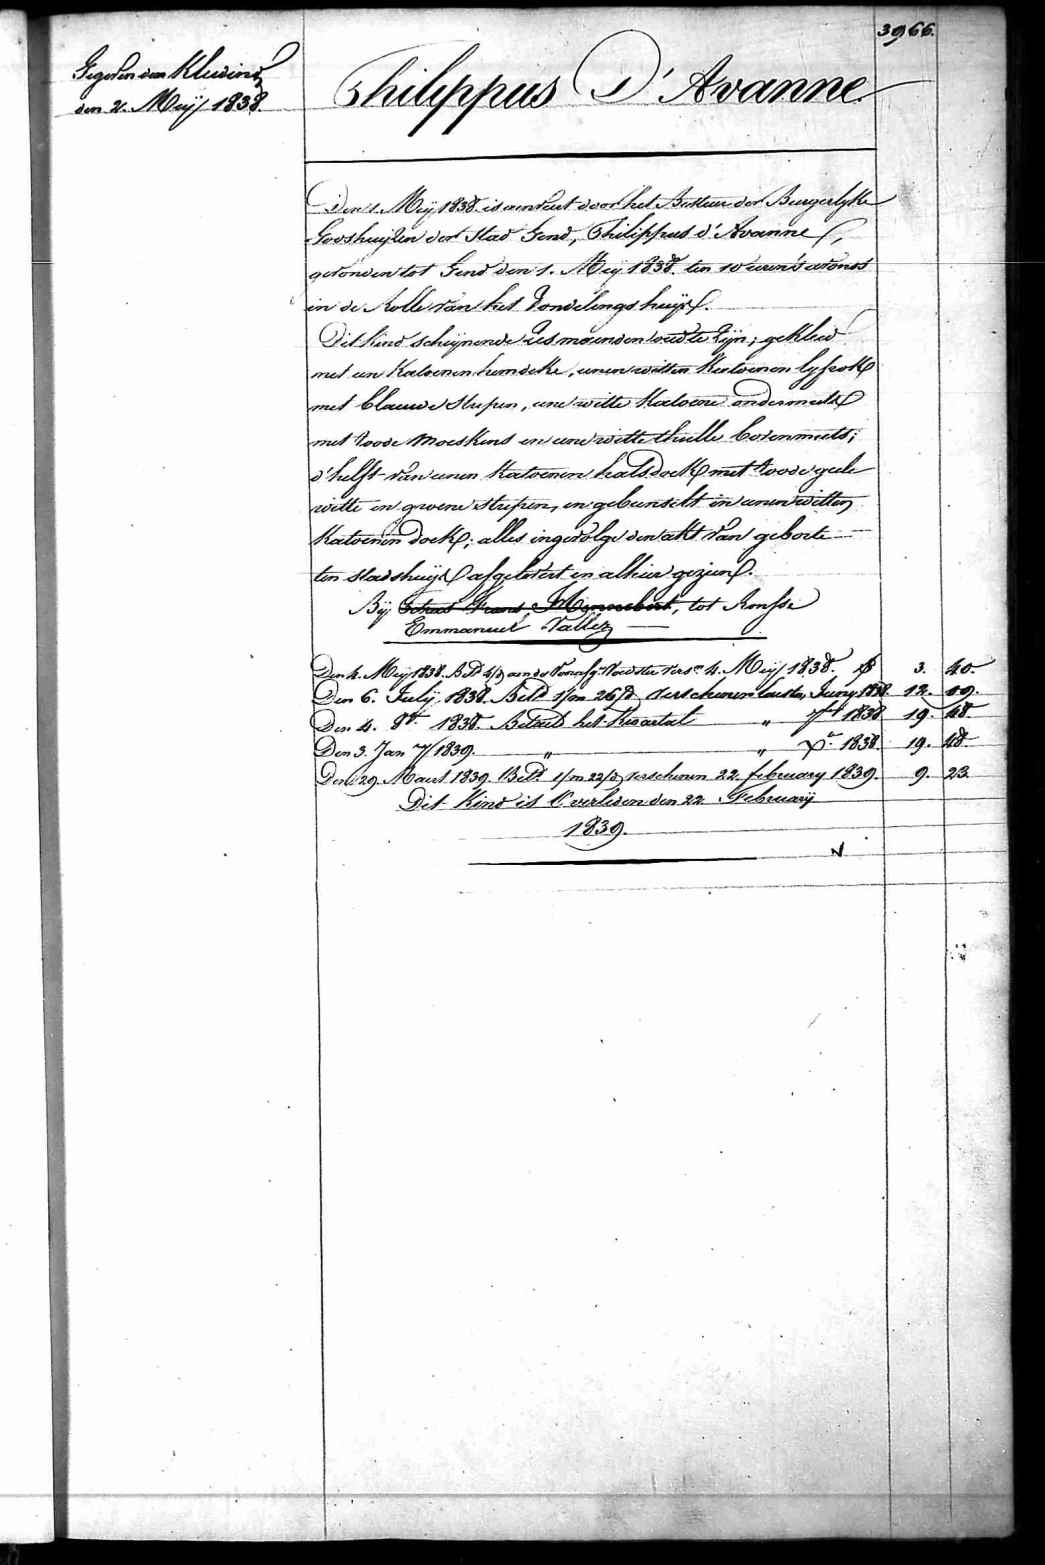 3966.
Gegeven een Kleeding
den 2. Meij 1838.
Philippus D'Avanne
Den 1. Meij 1838. is aenveert door het Bestuer der Burgerlyke
Godshuijzen der Stad Gend, Philippus d'Avanne,
gevonden tot Gend den 1. Meij 1838. ten 10 uren 's avonds
in de Rolle van het Vondelingshuijs.
Dit kind scheijnende zes maenden oud te zijn; gekleed
met een Katoenen hemdeke, eenen witten Katoenen lyfrok
met blauwe strepen, eene witte Katoene ondermuts
met roode moeskens en eene witte thulle bovenmuts;
d'helft van eenen Katoenen halsdoek met roode geele
witte en groene strepen, en gebunselt in eenen witten
Katoenen doek; alles ingevolge den akt van geboorte
ten stadshuijs afgelevert en alhier gezien.
Bij Frans, tot Ronsse
Emmanuel Vallez
Den 4. Meij 1838. Betd. aen de Voedster 4. Meij 1838. 3. 40.
Den 6. Julij 1838. Betd. 1/m 26/d verschenen Juny 1838. 12. 09.
Den 4. 8br. 1838. Betaeld het Kwartael " 7br 1838 19. 48.
Den 3. Jan 1839. " " Xr. 1838. 19. 48.
Den 29. Maert 1839. Betd. 1/m 22/d verschenen 22. february 1839. 9. 23.
Dit Kind is Overleden den 22 Februarij
1839.